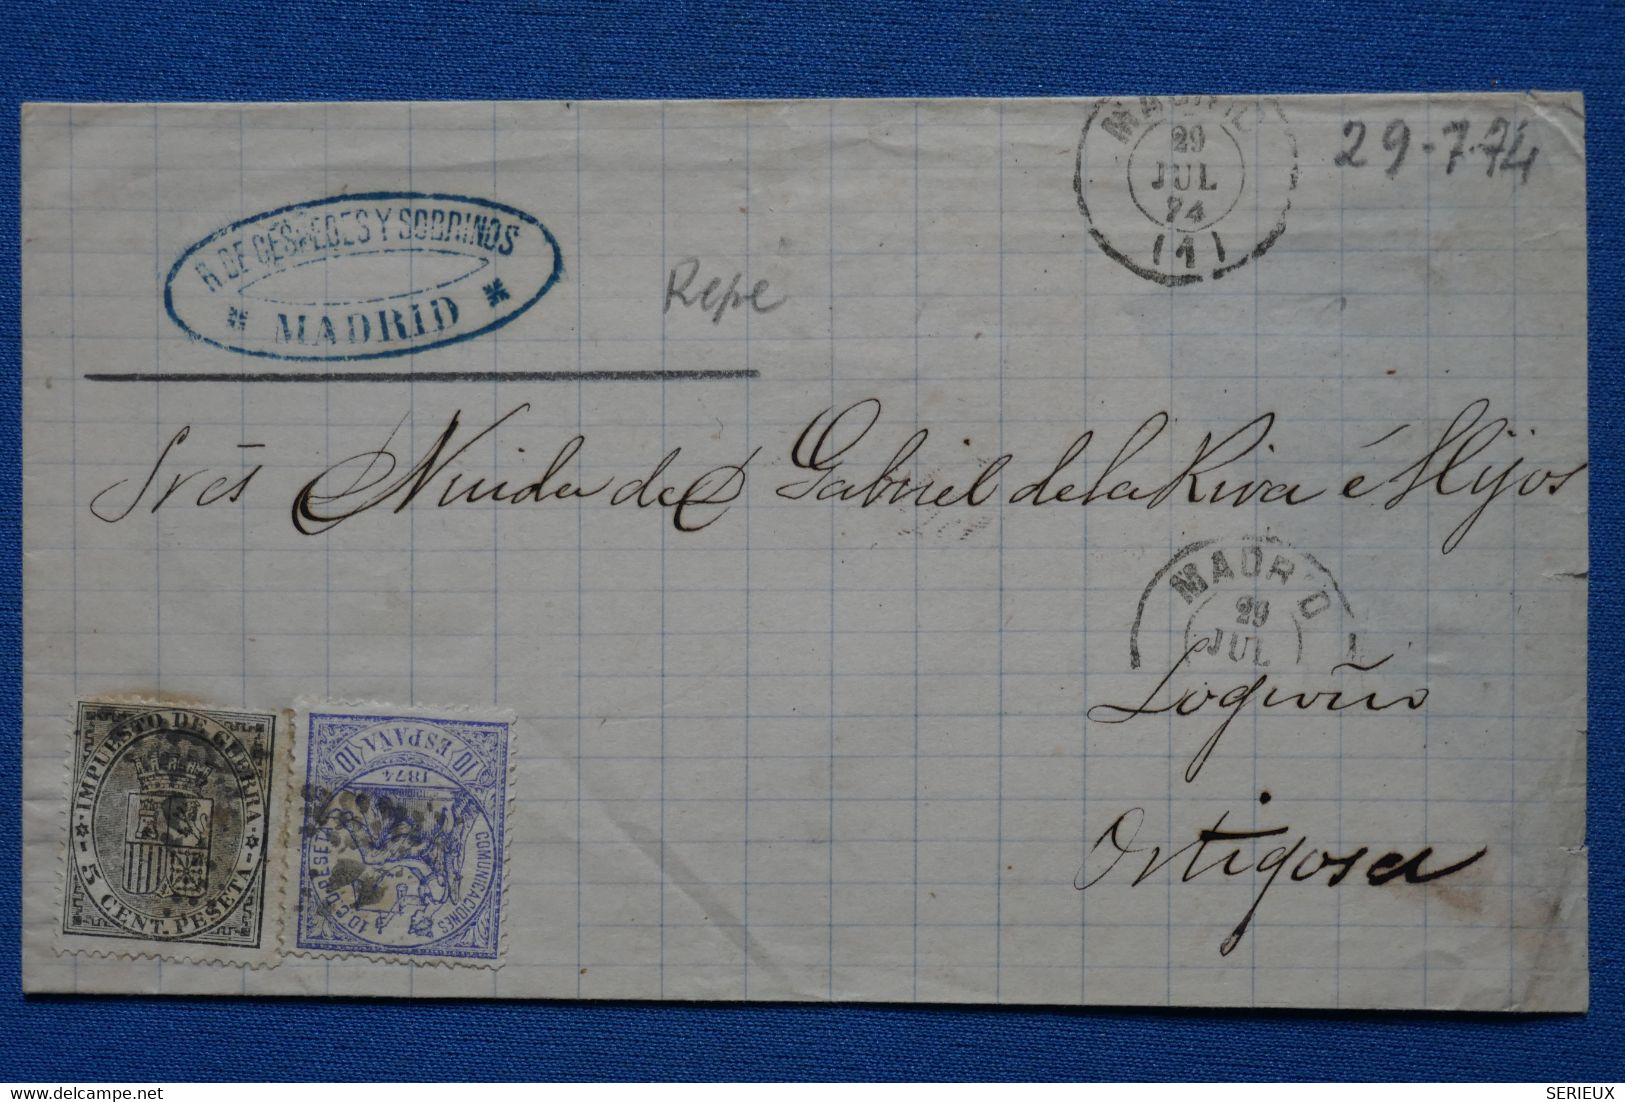 MADRID
29
JUL
74
(1)
29-7-74
R. DE CESPEDES Y SOBRINOS
MADRID
Repe
Srēs Viuda de D Gabriel de la Riva é Hijos
MADRID
29
JUL
Logroño
Ortigosa
IMPUESTO DE GUERRA
5 CENT. PESETA
10 ESPAÑA 10
1874
COMUNICACIONES
10 C. DE PESETA
SERIEUX